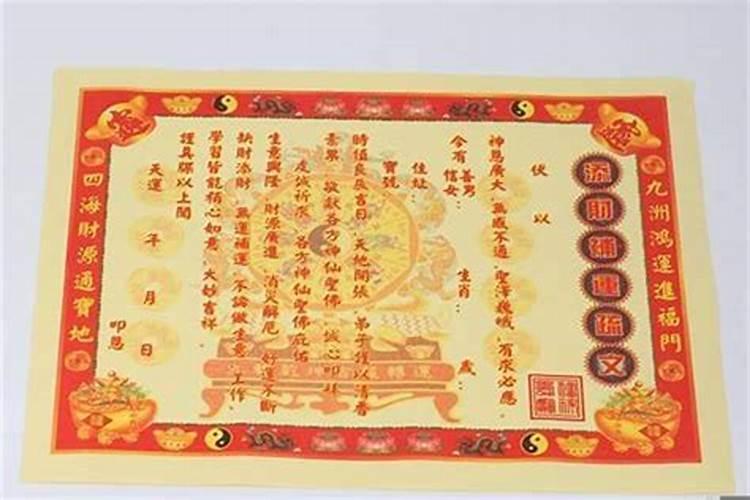 九洲鴻運進福門
添財補運疏文
伏以
神恩廣大 無感不通 聖澤巍峨 有求必應
今有善男信女： 生肖： 歲：
住址：
寶號：
時值良辰吉日 天地開張 弟子謹以清香
素菓 敬獻各方神仙聖佛 誠心叩拜
虔誠祈求 各方神仙聖佛庇佑
生意興隆 財源廣進 消災解厄 好運不斷
缺財添財 無運補運 不論做生意、工作、
學習皆能稱心如意 大妙吉祥
謹具疏以上聞
天運 年 月 日 叩恩
四海財源通寶地